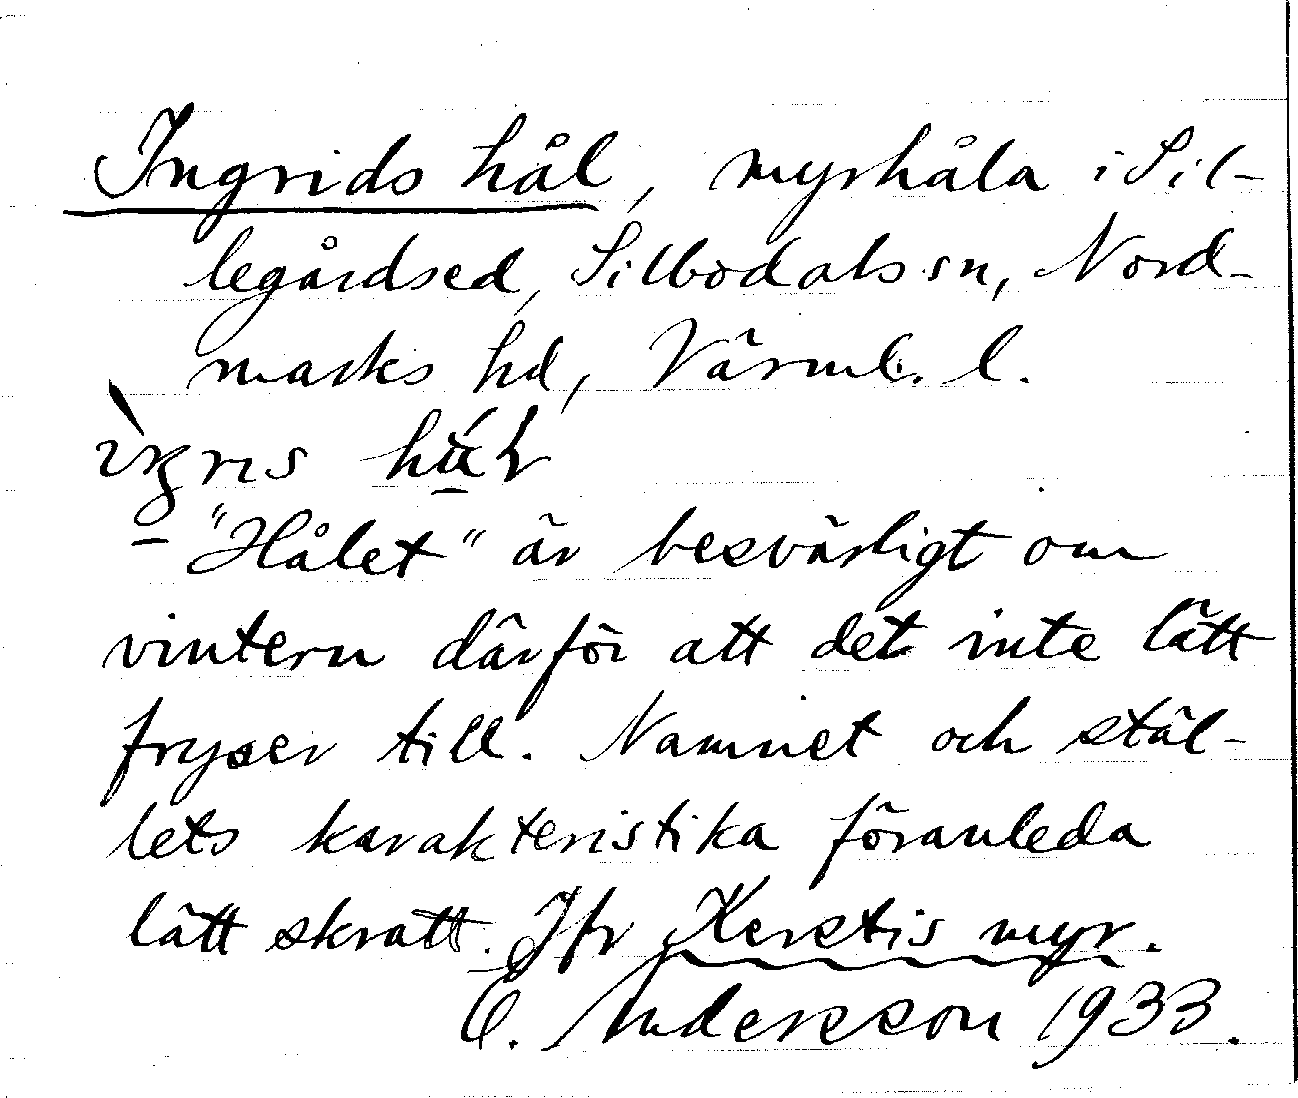 Ingrids hål, myrhåla i Sil-
legårdsed, Silbodals sn, Nord-
marks hd, Värml. l.
"Hålet" är besvärligt om
vintern därför att det inte lätt
fryser till. Namnet och stäl-
lets karakteristika föranleda
lätt skratt. Jfr Kerstis myr.
E. Andersson 1933.